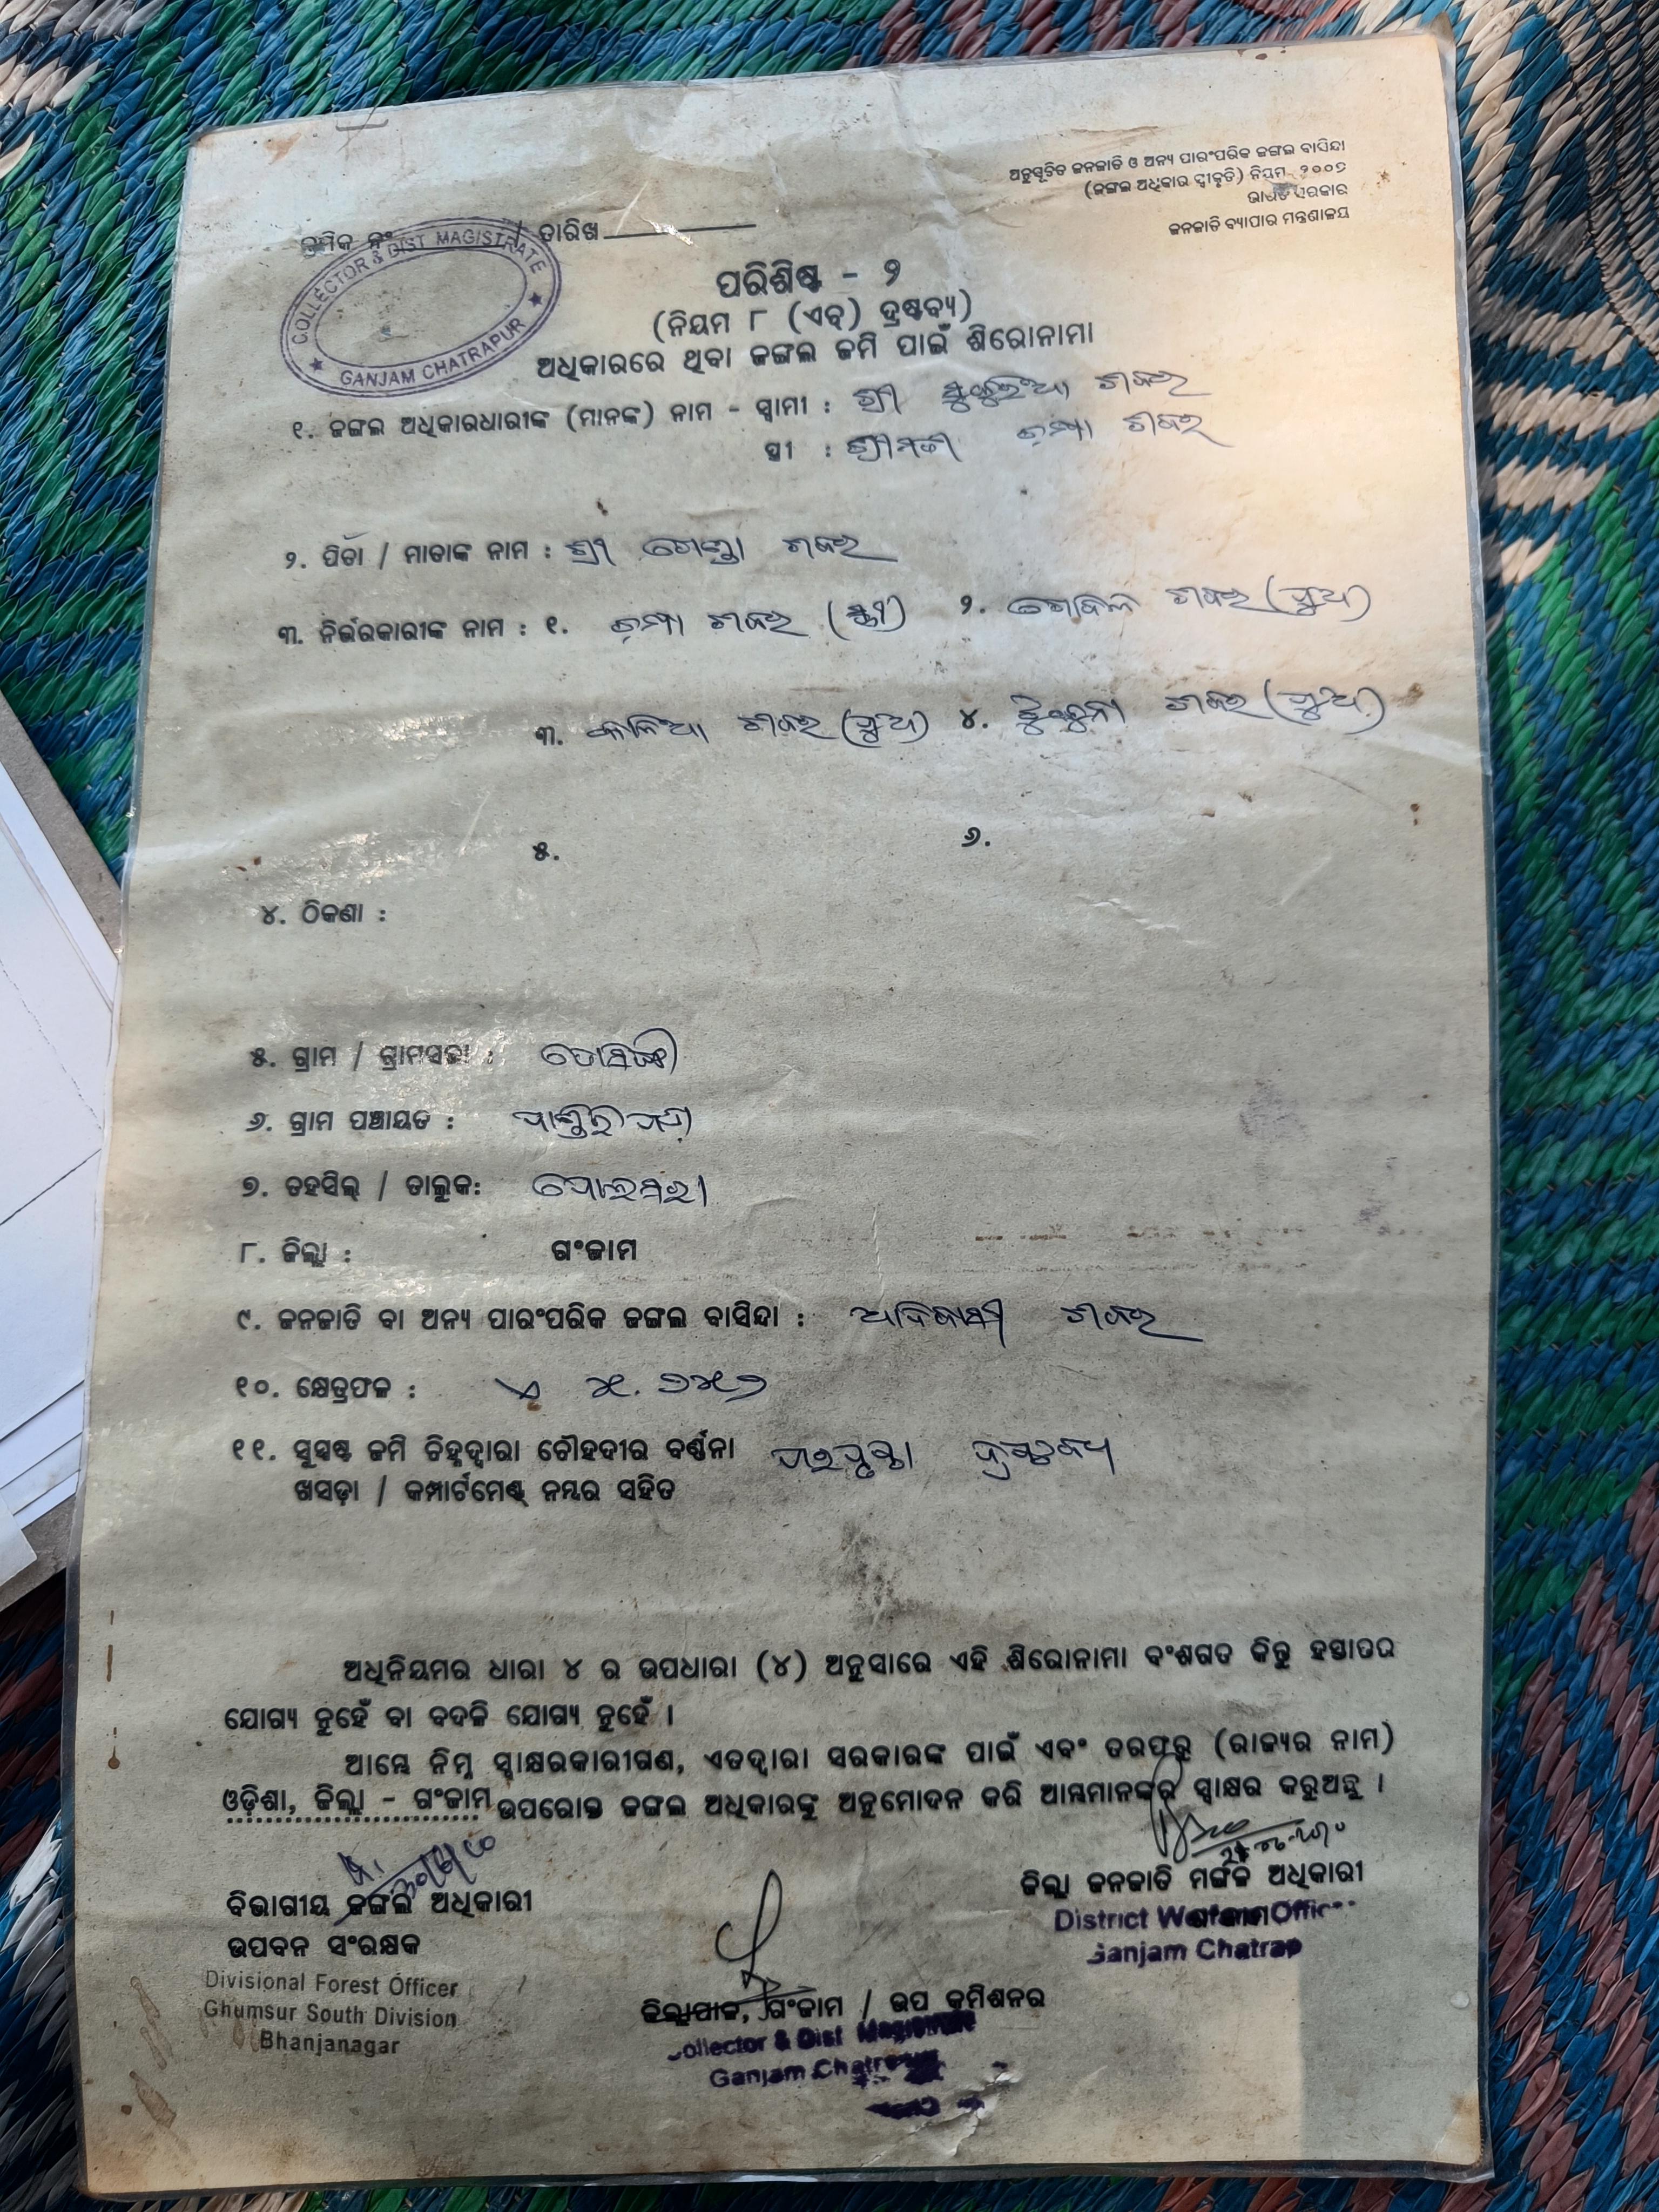 ଅନୁସୂଚିତ ଜନଜାତି ଓ ଅନ୍ୟ ପାରଂପରିକ ଜଙ୍ଗଲ ବାସିନ୍ଦା
(ଜଙ୍ଗଲ ଅଧିକାର ସ୍ୱୀକୃତି) ନିୟମ- ୨୦୦୭
ଭାରତ ସରକାର
ଜନଜାତି ବ୍ୟାପାର ମନ୍ତ୍ରଣାଳୟ
କ୍ରମିକ ନଂ / ତାରିଖ
COLLECTOR & DIST MAGISTRATE
GANJAM CHATRAPUR
ପରିଶିଷ୍ଟ - ୨
(ନିୟମ ୮ (ଏବ୍) ଦ୍ରଷ୍ଟବ୍ୟ)
ଅଧିକାରରେ ଥିବା ଜଙ୍ଗଲ ଜମି ପାଇଁ ଶିରୋନାମା
୧. ଜଙ୍ଗଲ ଅଧିକାରଧାରୀଙ୍କ (ମାନଙ୍କ) ନାମ - ସ୍ୱାମୀ : ଶ୍ରୀ ଶବର
ସ୍ତ୍ରୀ : ଶ୍ରୀମତୀ ଚମ୍ପା ଶବର
୨. ପିତା / ମାତାଙ୍କ ନାମ : ଶ୍ରୀ ଶବର
୩. ନିର୍ଭରକାରୀଙ୍କ ନାମ : ୧. ଚମ୍ପା ଶବର (ସ୍ତ୍ରୀ) ୨. ଶବର (ପୁଅ)
୩. କାଳିଆ ଶବର (ପୁଅ) ୪. ଟୁକୁନା ଶବର (ପୁଅ)
୫. ୬.
୪. ଠିକଣା :
୫. ଗ୍ରାମ / ଗ୍ରାମସଭା :
୬. ଗ୍ରାମ ପଞ୍ଚାୟତ :
୭. ତହସିଲ୍ / ତାଲୁକ: ପୋଲସରା
୮. ଜିଲ୍ଲା : ଗଂଜାମ
୯. ଜନଜାତି ବା ଅନ୍ୟ ପାରଂପରିକ ଜଙ୍ଗଲ ବାସିନ୍ଦା : ଆଦିବାସୀ ଶବର
୧୦. କ୍ଷେତ୍ରଫଳ :
୧୧. ସୁସ୍ପଷ୍ଟ ଜମି ଚିହ୍ନଦ୍ୱାରା ଚୌହଦୀର ବର୍ଣ୍ଣନା ପରପୃଷ୍ଠା ଦ୍ରଷ୍ଟବ୍ୟ
ଖସଡ଼ା / କମ୍ପାର୍ଟମେଣ୍ଟ୍ ନମ୍ବର ସହିତ
ଅଧିନିୟମର ଧାରା ୪ ର ଉପଧାରା (୪) ଅନୁସାରେ ଏହି ଶିରୋନାମା ବଂଶଗତ କିନ୍ତୁ ହସ୍ତାନ୍ତର
ଯୋଗ୍ୟ ନୁହେଁ ବା ବଦଳି ଯୋଗ୍ୟ ନୁହେଁ ।
ଆମ୍ଭେ ନିମ୍ନ ସ୍ୱାକ୍ଷରକାରୀଗଣ, ଏତଦ୍ୱାରା ସରକାରଙ୍କ ପାଇଁ ଏବଂ ତରଫରୁ (ରାଜ୍ୟର ନାମ)
ଓଡ଼ିଶା, ଜିଲ୍ଲା - ଗଂଜାମ ଉପରୋକ୍ତ ଜଙ୍ଗଲ ଅଧିକାରଙ୍କୁ ଅନୁମୋଦନ କରି ଆମ୍ଭମାନଙ୍କର ସ୍ୱାକ୍ଷର କରୁଅଛୁ ।
ବିଭାଗୀୟ ଜଙ୍ଗଲ ଅଧିକାରୀ
ଉପବନ ସଂରକ୍ଷକ
Divisional Forest Officer
Ghumsur South Division
Bhanjanagar
ଜିଲ୍ଲାପାଳ, ଗଂଜାମ / ଉପ କମିଶନର
Collector & Dist Magistrate
Ganjam Chatrapur
ଜିଲ୍ଲା ଜନଜାତି ମଙ୍ଗଳ ଅଧିକାରୀ
District Welfare Officer
Ganjam Chatrap